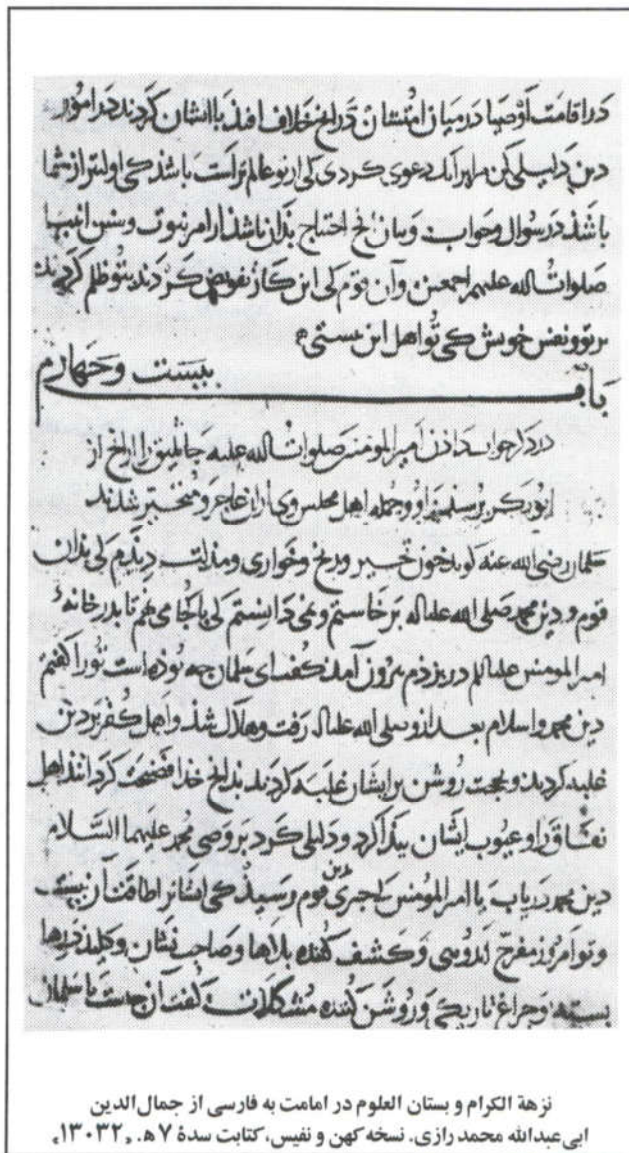 در اقامت اوصیا در میان امتشان در انچ خلاف افتد با ایشان کردند در امور
دین دلیلی کن مرا بر آنک دعوی کردی کی از تو عالم تر است باشذ کی اولیتر از شما
باشذ در سوال و جواب و بیان انچ احتیاج بذان باشذ از امر نبوت و سنن انبیا
صلوات الله علیهم اجمعین و آن قوم کی این کار تفویض کردند بتو ظلم کردند
بر تو و نفس خویش کی تو اهل این نیستی
باب بیست و چهارم
در ذکر جواب داذن امیرالمومنین صلوات الله علیه جاثلیق را از انچ از
ابوبکر پرسید و او و جمله اهل مجلس وی از ان عاجز و متحیر شدند
سلمان رضی الله عنه کوید چون تحیر ورنج و خواری و مذلت دیذم کی بذان
قوم و دین محمد صلی الله علیه برخاستم و نمی دانستم کی پا کجا می نهم تا بدر خانهٔ
امیرالمومنین علیه السلم در بزدم بیرون آمد کفت ای سلمان چه بوذه است تو را کفتم
دین محمد و اسلام بعد از وصلی الله علیه رفت و هلاک شذ و اهل کفر بر دین
غلبه کردند و بحجت روشن بر ایشان غلبه کردند بدانچ خدا فضیحت کردانند اهل
نفاق را و عیوب ایشان پیدا کرد و دلیلی کرد بر وصی محمد علیهما السلام
دین محمد دریاب یا امیرالمومنین کی چیزی بدین قوم رسیذ کی ایشانرا طاقت آن نیست
و تو امروز مفرج اندوهی و کشف کننده بلاها و صاحب نشان و کلید درها
بسته و چراغ تاریکی و روشن کننده مشکلات کفت آن چیست یا سلمان
نزهة الکرام و بستان العلوم در امامت به فارسی از جمال‌الدین
ابی‌عبدالله محمد رازی. نسخه کهن و نفیس، کتابت سدهٔ ۷ ه‍. «۱۳۰۳۲»